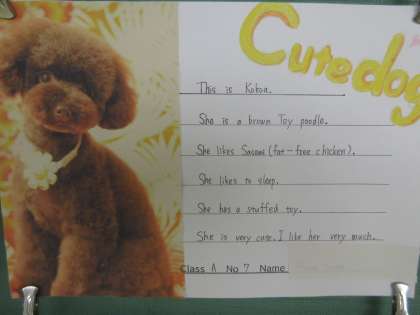 Cute dog
This is Kokoa.
She is a brown Toy poodle.
She likes Sasami (fat-free chicken).
She likes to sleep.
She has a stuffed toy.
She is very cute. I like her very much.
Class A No 7 Name